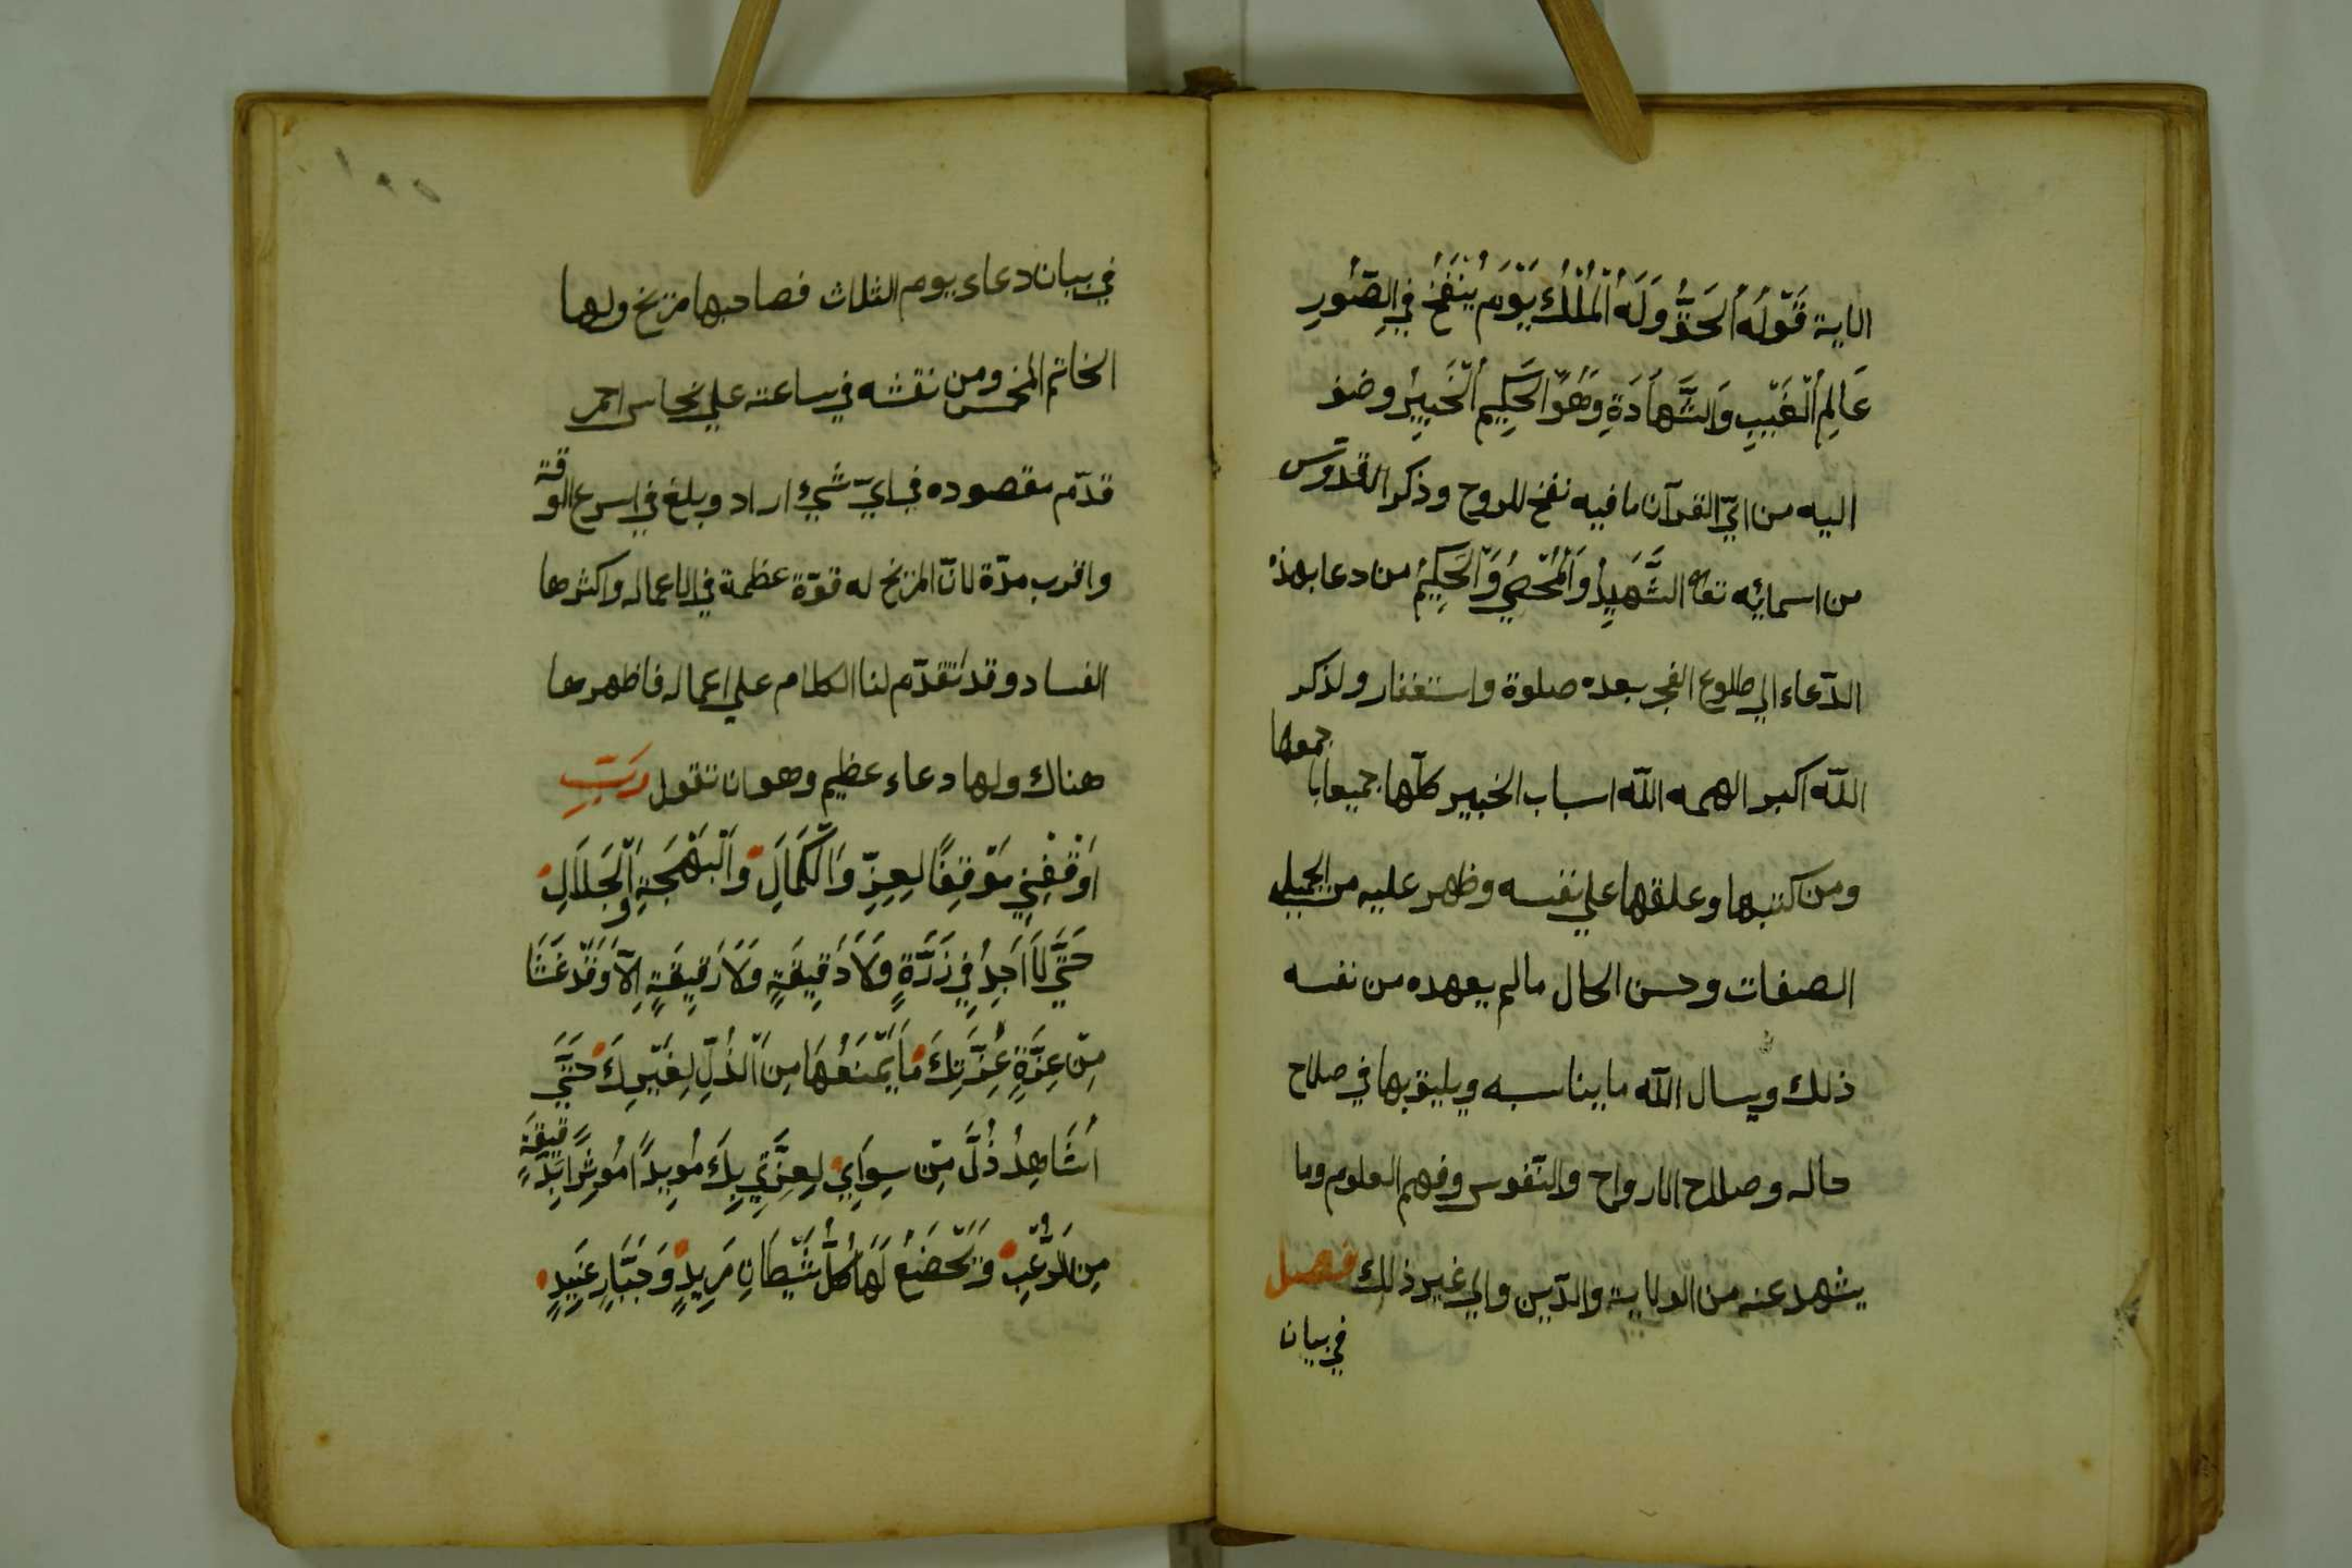 الاية قَوْلُهُ الْحَقُّ وَلَهُ الْمُلْكُ يَوْمَ يُنْفَخُ فِي الصُّورِ
عَالِمُ الْغَيْبِ وَالشَّهَادَةِ وَهُوَ الْحَكِيمُ الْخَبِيرُ وضف
اليه من ايّ القرآن ما فيه نفخ للروح وذكر القدّوس
من اسمائه تعا الشَّهِيدُ وَالْمُحْصِي وَالْحَكِيمُ من دعا بهذ
الدّعاء الي طلوع الفجر بعده صلوة واستغفار ولذكر
اللّه اكبر الهمه اللّه اسباب الخيير كلّها جميعابا
جمعها
ومن كتبها وعلقها علي نفسه وظهر عليه من الجميل
الصفات وحسن الحال ما لم يعهده من نفسه
ذلك ويسال اللّه ما يناسبه ويليق بها في صلاح
حاله وصلاح الارواح والنّفوس وفهم العلوم وما
يشهد عنه من الولاية والدّين والي غير ذلك فصل
في بيان
في بيان دعاء يوم الثلاث فصاحبها مريخ ولها
الخاتم المخمس ومن نقشه في ساعته علي نحاس احمر
قدّم مقصوده في ايّ شيء اراد وبلغ في اسرع الوقة
واقرب مدّة لانّ المريخ له قوّة عظمة في الاعمال واكثرها
الفساد وقد تقدّم لنا الكلام علي اعماله فاظهرها
هناك ولها دعاء عظيم وهو ان تقول رَبِّ
اَوْقِفْنِي مَوْقِفًا لِعِزِّ وَالْكَمَالِ وَالْبَهْجَةِ وَالْجَلَالِ
حَتَّي لَا اَجِدُ فِي ذَرَّةٍ وَلَا دَقِيقَةٍ وَلَا رَقِيقَةٍ اِلَّا وَقَدْ غَشَا
مِنْ عِزَّةِ عِزَّتِكَ مَا يَمْنَعُهَا مِنَ الذُّلِّ لِغَيْرِكَ حَتَّي
اُشَاهِدُ ذُلَّ مِنْ سِوَايَ لِعِزَّتِي بِكَ مُوِيدًا بِدَقِيقَةٍ
مِنَ الرُّعْبِ وَيَخْضَعُ لَهَا كُلُّ شَيْطَانٍ مَرِيدٍ وَجَبَّارٍ عَنِيدٍ